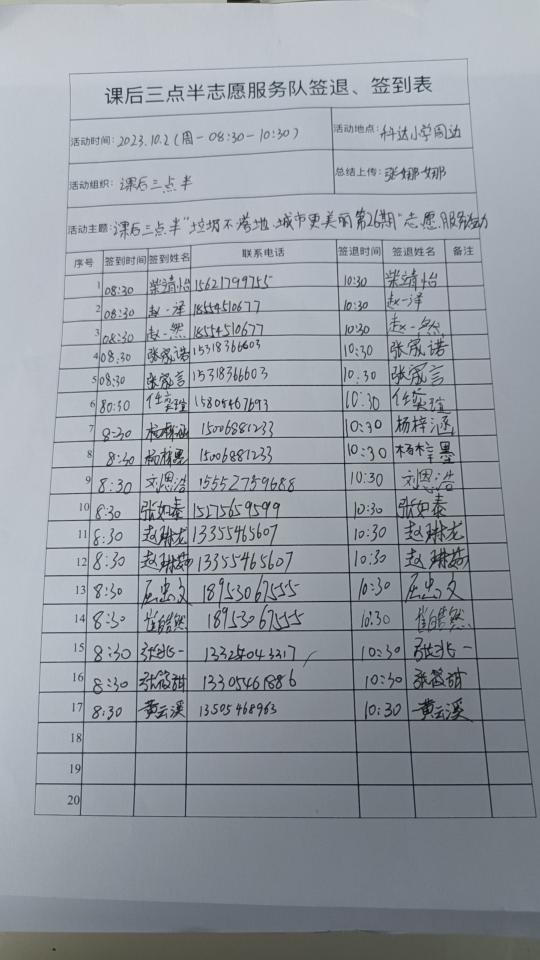 课后三点半志愿服务队签退、签到表
活动时间：2023.10.2(周一08:30-10:30) 活动地点：科达小学周边
活动组织：课后三点半 总结上传：张娜娜
活动主题：课后三点半"垃圾不落地 城市更美丽第26期"志愿服务活动
序号 签到时间 签到姓名 联系电话 签退时间 签退姓名 备注
1 08:30 柴靖怡 15621799755 10:30 柴靖怡
2 08:30 赵一泽 18554510677 10:30 赵一泽
3 08:30 赵一然 18554510677 10:30 赵一然
4 08:30 张宸诺 15318366603 10:30 张宸诺
5 08:30 张宸言 15318366603 10:30 张宸言
6 80:30 任奕瑄 15805467693 10:30 任奕瑄
7 8:30 杨梓涵 15006881233 10:30 杨梓涵
8 8:30 杨梓墨 15006881233 10:30 杨梓墨
9 8:30 刘恩浩 15552759688 10:30 刘恩浩
10 8:30 张如泰 1575659599 10:30 张如泰
11 8:30 赵琳龙 13355465607 10:30 赵琳龙
12 8:30 赵琳茹 13355465607 10:30 赵琳茹
13 8:30 屈忠文 18953067555 10:30 屈忠文
14 8:30 崔皓然 18953067555 10:30 崔皓然
15 8:30 张兆一 10:30 张兆一
16 8:30 张筱甜 13305461886 10:30 张筱甜
17 8:30 黄云溪 13505468963 10:30 黄云溪
18
19
20